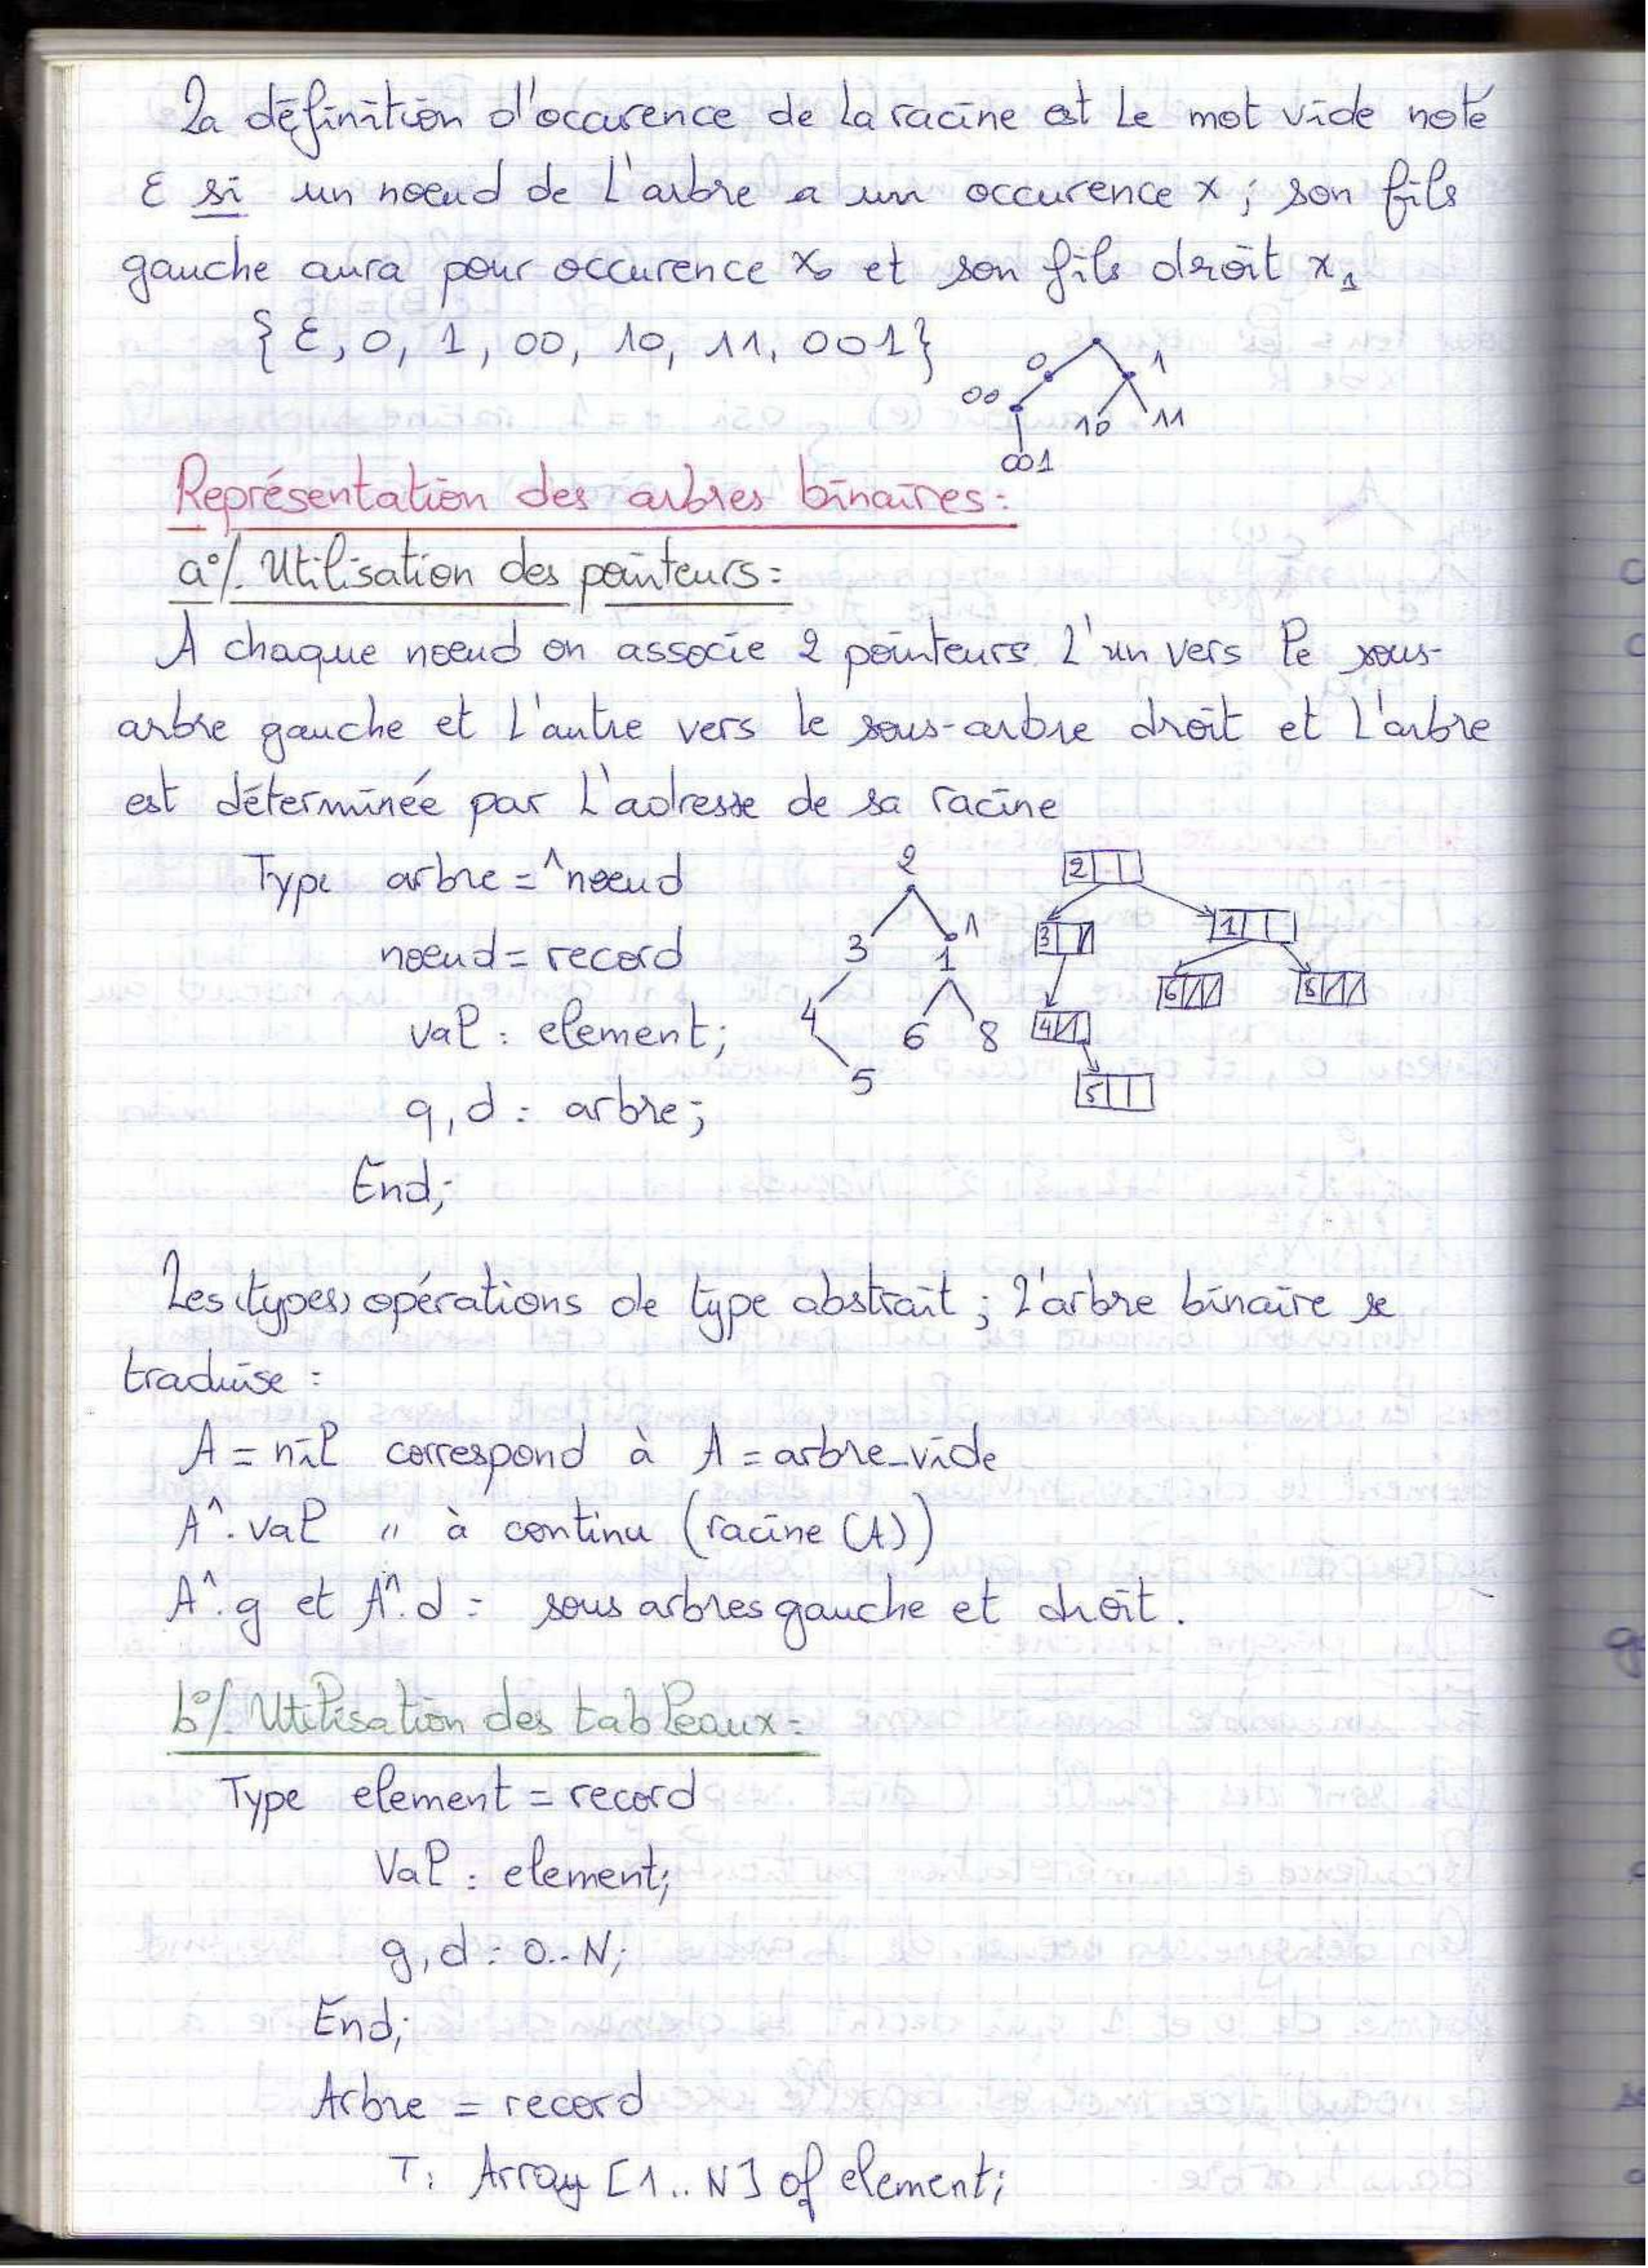 La définition d'occurence de la racine est le mot vide noté
ε si un noeud de l'arbre a un occurence x ; son fils
gauche aura pour occurence x₀ et son fils droit x₁
{ ε, 0, 1, 00, 10, 11, 001 }
0 1
00 10 11
001
Représentation des arbres binaires :
a°/. Utilisation des pointeurs :
A chaque noeud on associe 2 pointeurs l'un vers le sous-
arbre gauche et l'autre vers le sous-arbre droit et l'arbre
est déterminée par l'adresse de sa racine
Type arbre = ^noeud
noeud = record
val : element;
g,d : arbre;
End;
2
3 1
1
4 6 8
5
2
3 1
6 8
4
5
Les (types) opérations de type abstrait ; l'arbre binaire se
traduise :
A = nil correspond à A = arbre_vide
A^.val " à continu (racine (A))
A^.g et A^.d : sous arbres gauche et droit.
b°/. Utilisation des tableaux :
Type element = record
Val : element;
g,d : 0..N;
End;
Arbre = record
T : Array [1..N] of element;